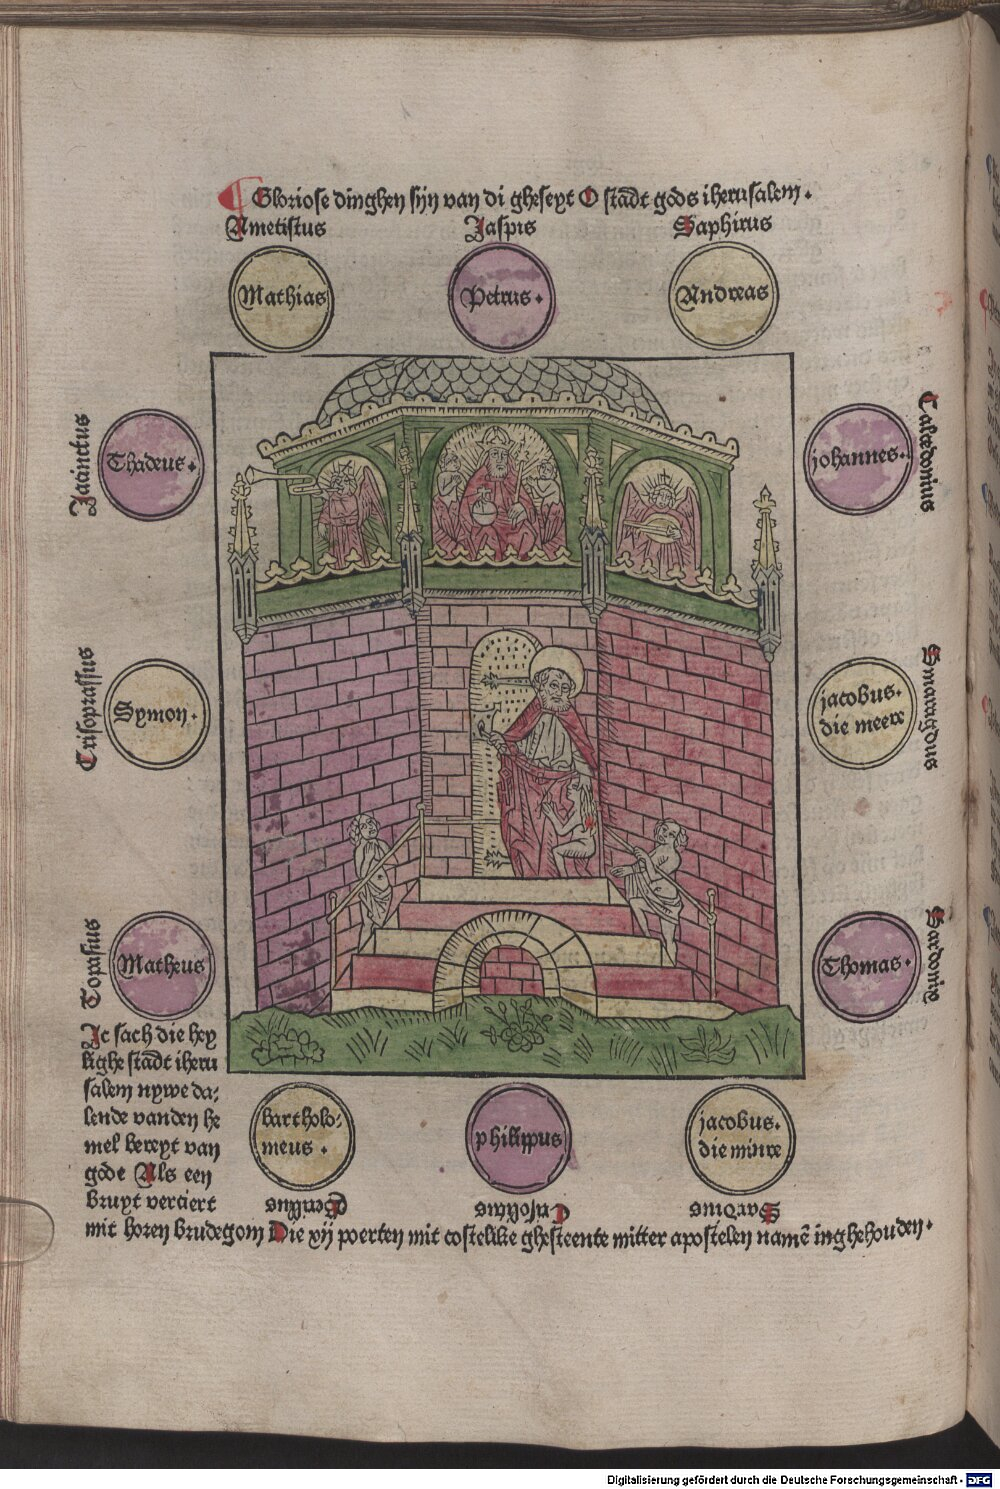 Gloriose dinghen sijn van di gheseyt O stadt gods iherusalem.
Ametistus
Jaspis
Saphirus
Mathias
Petrus.
Andreas
Jacinctus
Thadeus.
johannes.
Calcedonius
Crisoprassus
Symon.
jacobus.
die meere
Smaragdus
Topasius
Matheus
Thomas.
Sardonix
Ic sach die hey
lighe stadt iheru
salem nywe da:
lende vanden he
mel bereyt van
gode Als een
bruyt verciert
mit horen brudegom Die xij poerten mit costelike ghesteente mitter apostelen namē inghehouden.
bartholo:
meus.
philippus
jacobus.
die minre
Berillus
Crisolitus
Sardius
Digitalisierung gefördert durch die Deutsche Forschungsgemeinschaft - DFG